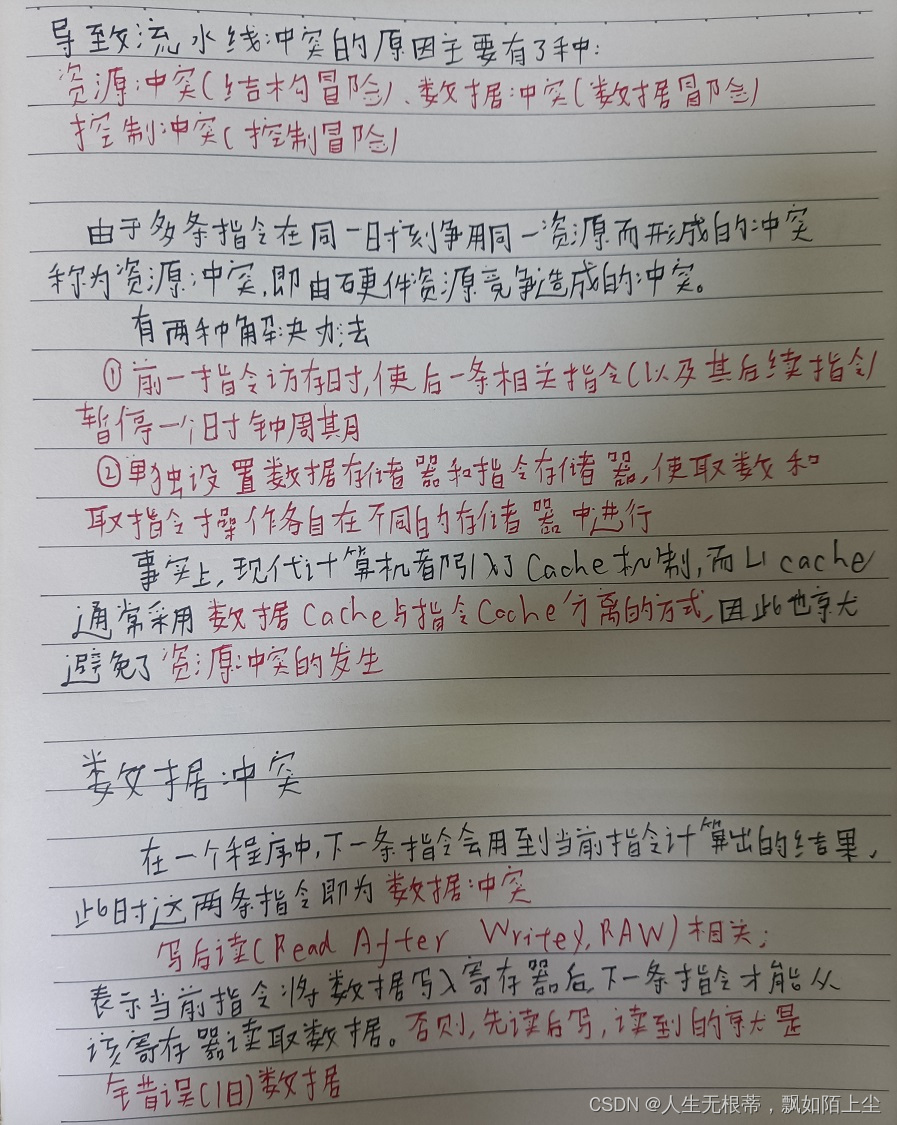 导致流水线冲突的原因主要有3种:
资源冲突(结构冒险)、数据冲突(数据冒险)
控制冲突(控制冒险)
由于多条指令在同一时刻争用同一资源而形成的冲突
称为资源冲突,即由硬件资源竞争造成的冲突。
有两种解决办法
①前一指令访存时,使后一条相关指令(以及其后续指令)
暂停一个时钟周期
②单独设置数据存储器和指令存储器,使取数和
取指令操作各自在不同的存储器中进行
事实上,现代计算机都引入了Cache机制,而L1 cache
通常采用数据Cache与指令Cache分离的方式,因此也就
避免了资源冲突的发生
数据冲突
在一个程序中,下一条指令会用到当前指令计算出的结果,
此时这两条指令即为数据冲突
写后读(Read After Write),RAW)相关;
表示当前指令将数据写入寄存器后,下一条指令才能从
该寄存器读取数据。否则,先读后写,读到的就是
错误(旧)数据
CSDN @人生无根蒂，飘如陌上尘